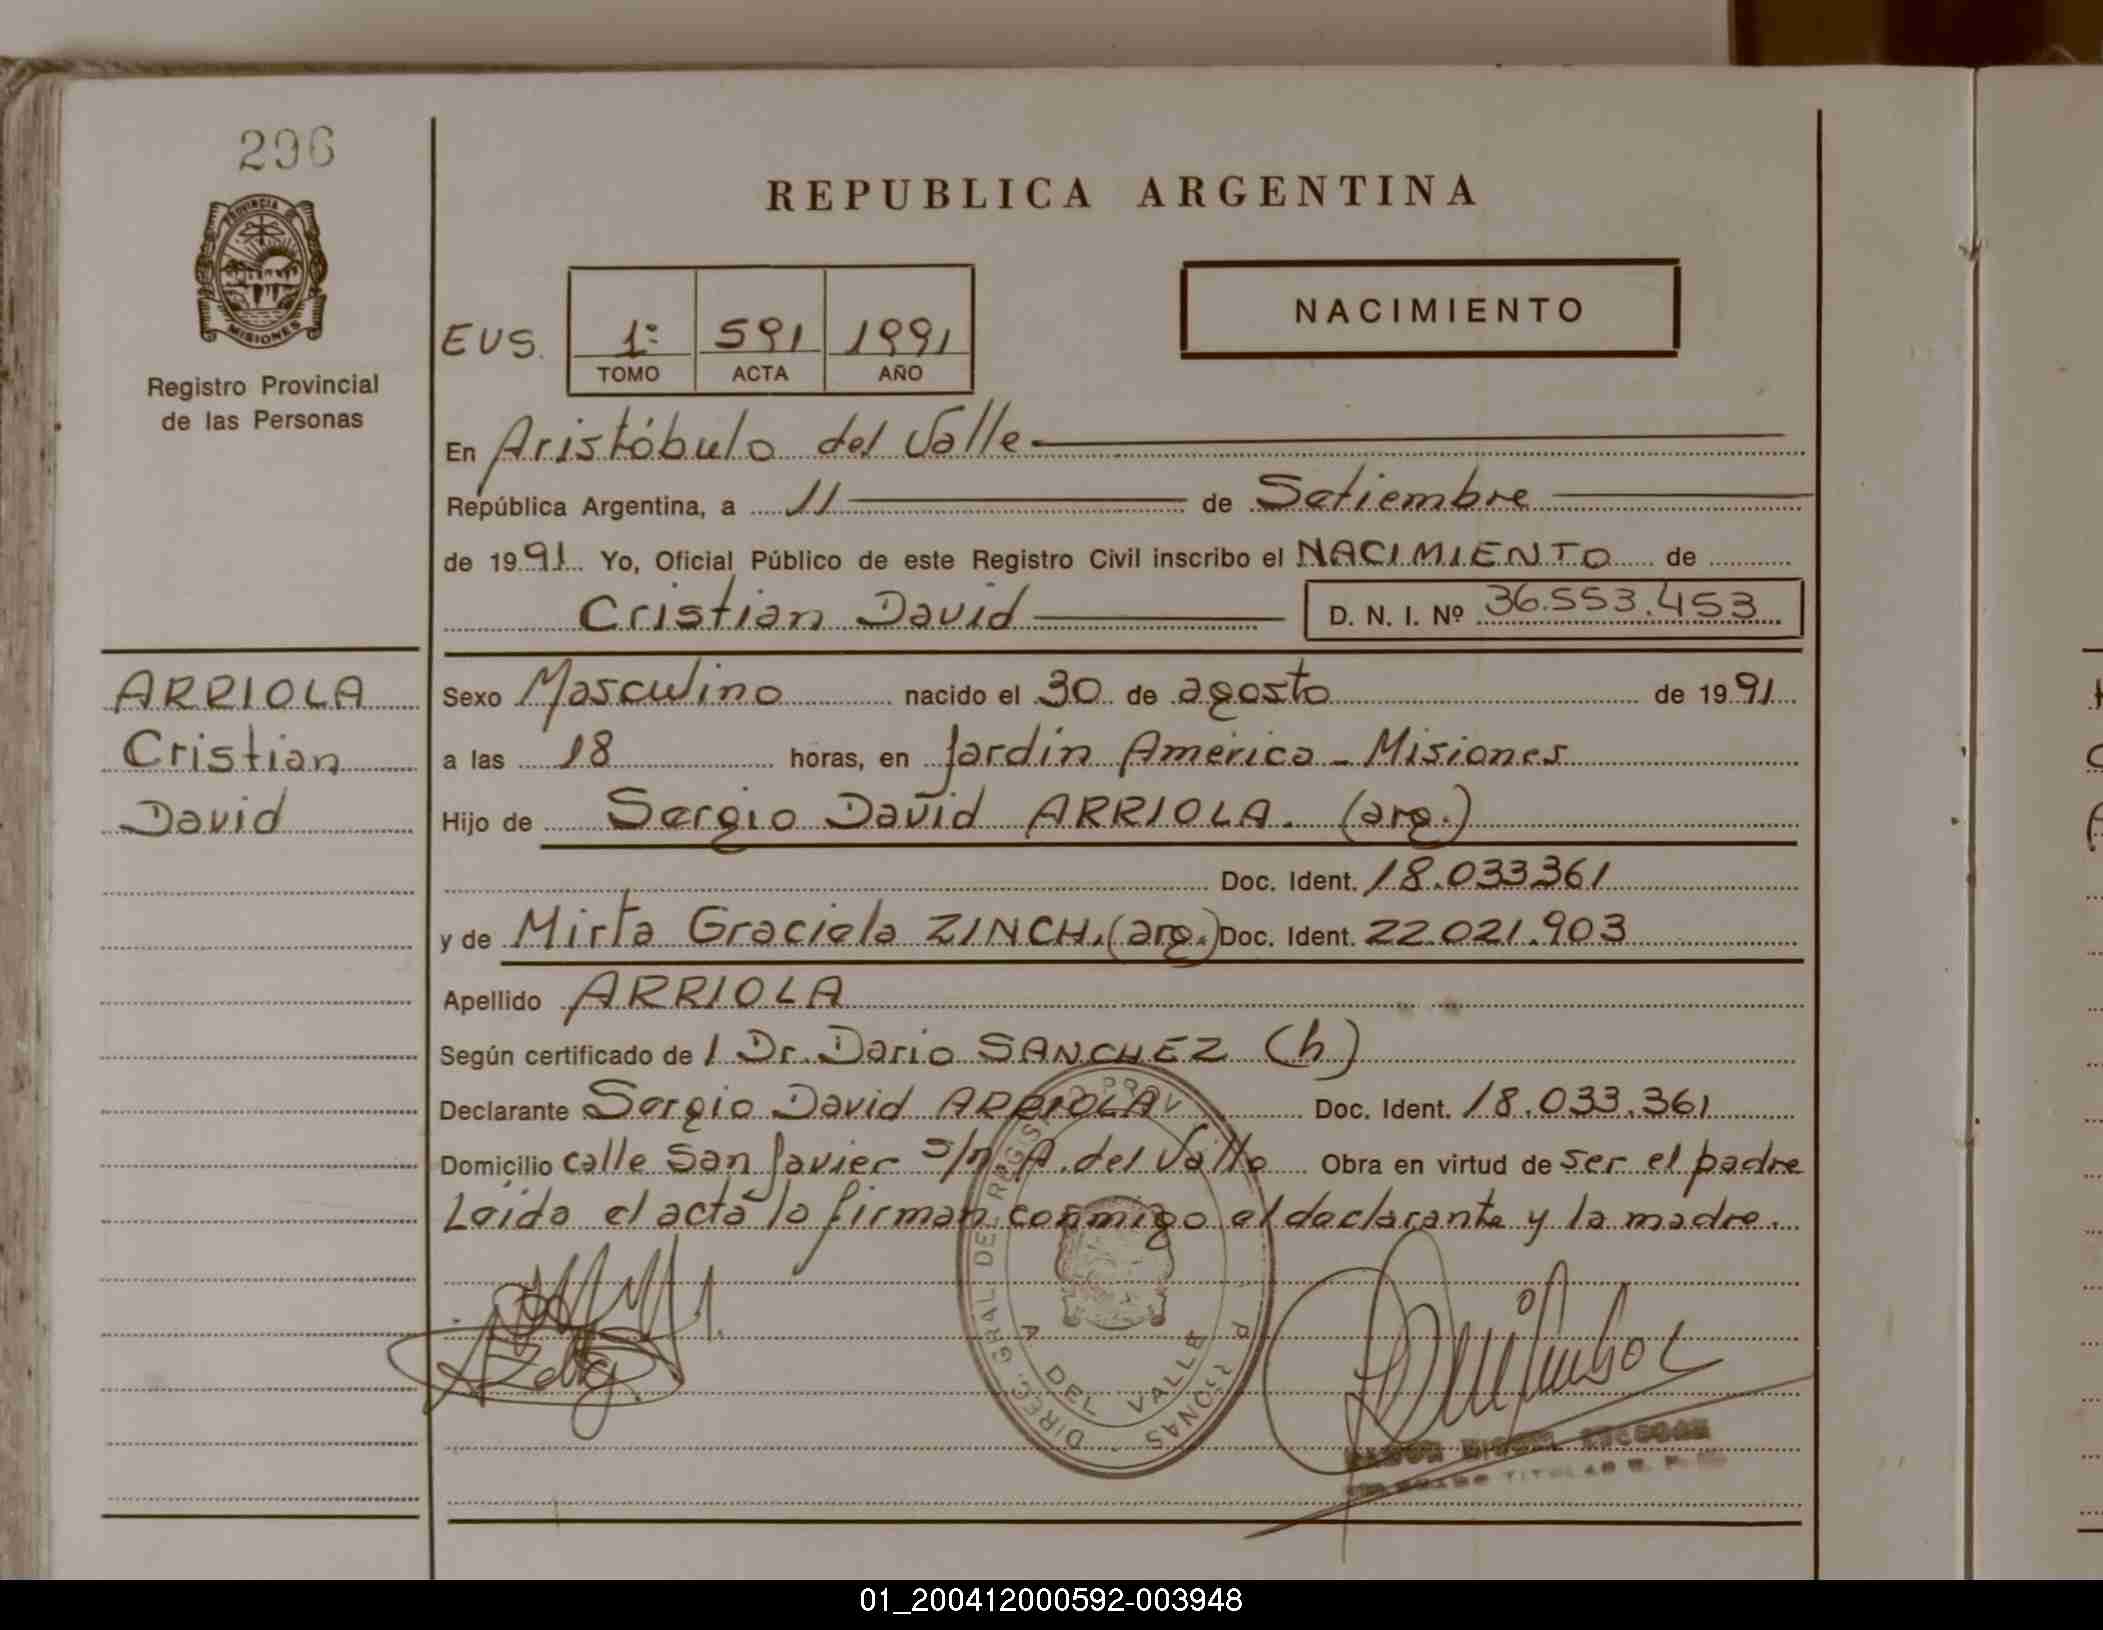 296
PROVINCIA DE
MISIONES
Registro Provincial
de las Personas
ARRIOLA
Cristian
David
REPUBLICA ARGENTINA
NACIMIENTO
EUS. 1º 591 1991
TOMO ACTA AÑO
En Aristóbulo del Valle
República Argentina, a 11 de Setiembre
de 1991 Yo, Oficial Público de este Registro Civil inscribo el NACIMIENTO de
Cristian David D. N. I. Nº 36.553.453
Sexo Masculino nacido el 30 de agosto de 1991
a las 18 horas, en Jardín América - Misiones
Hijo de Sergio David ARRIOLA. (arg.)
Doc. Ident. 18.033361
y de Mirta Graciela ZINCH. (arg.) Doc. Ident. 22.021.903
Apellido ARRIOLA
Según certificado de 1 Dr. Dario SANCHEZ (h)
Declarante Sergio David ARRIOLA Doc. Ident. 18.033.361
Domicilio calle San Javier s/n. A. del Valle Obra en virtud de ser el padre
Leída el acta la firman conmigo el declarante y la madre.
DIREC. GRAL DEL REGISTRO PROV
A. DEL VALLE
TITULAR
01_200412000592-003948